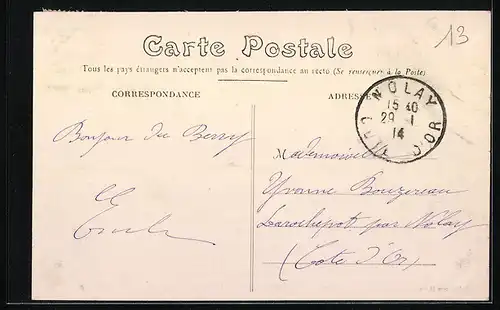 13
Carte Postale
Tous les pays étrangers n'acceptent pas la correspondance au recto (Se renseigner à la Poste)
CORRESPONDANCE
ADRESSE
NOLAY
15 40
29 -1
14
CÔTE D'OR
Bonjour du Berry
Mademoiselle
Yvonne Bouzereau
Larochepot par Nolay
(Cote d'Or)